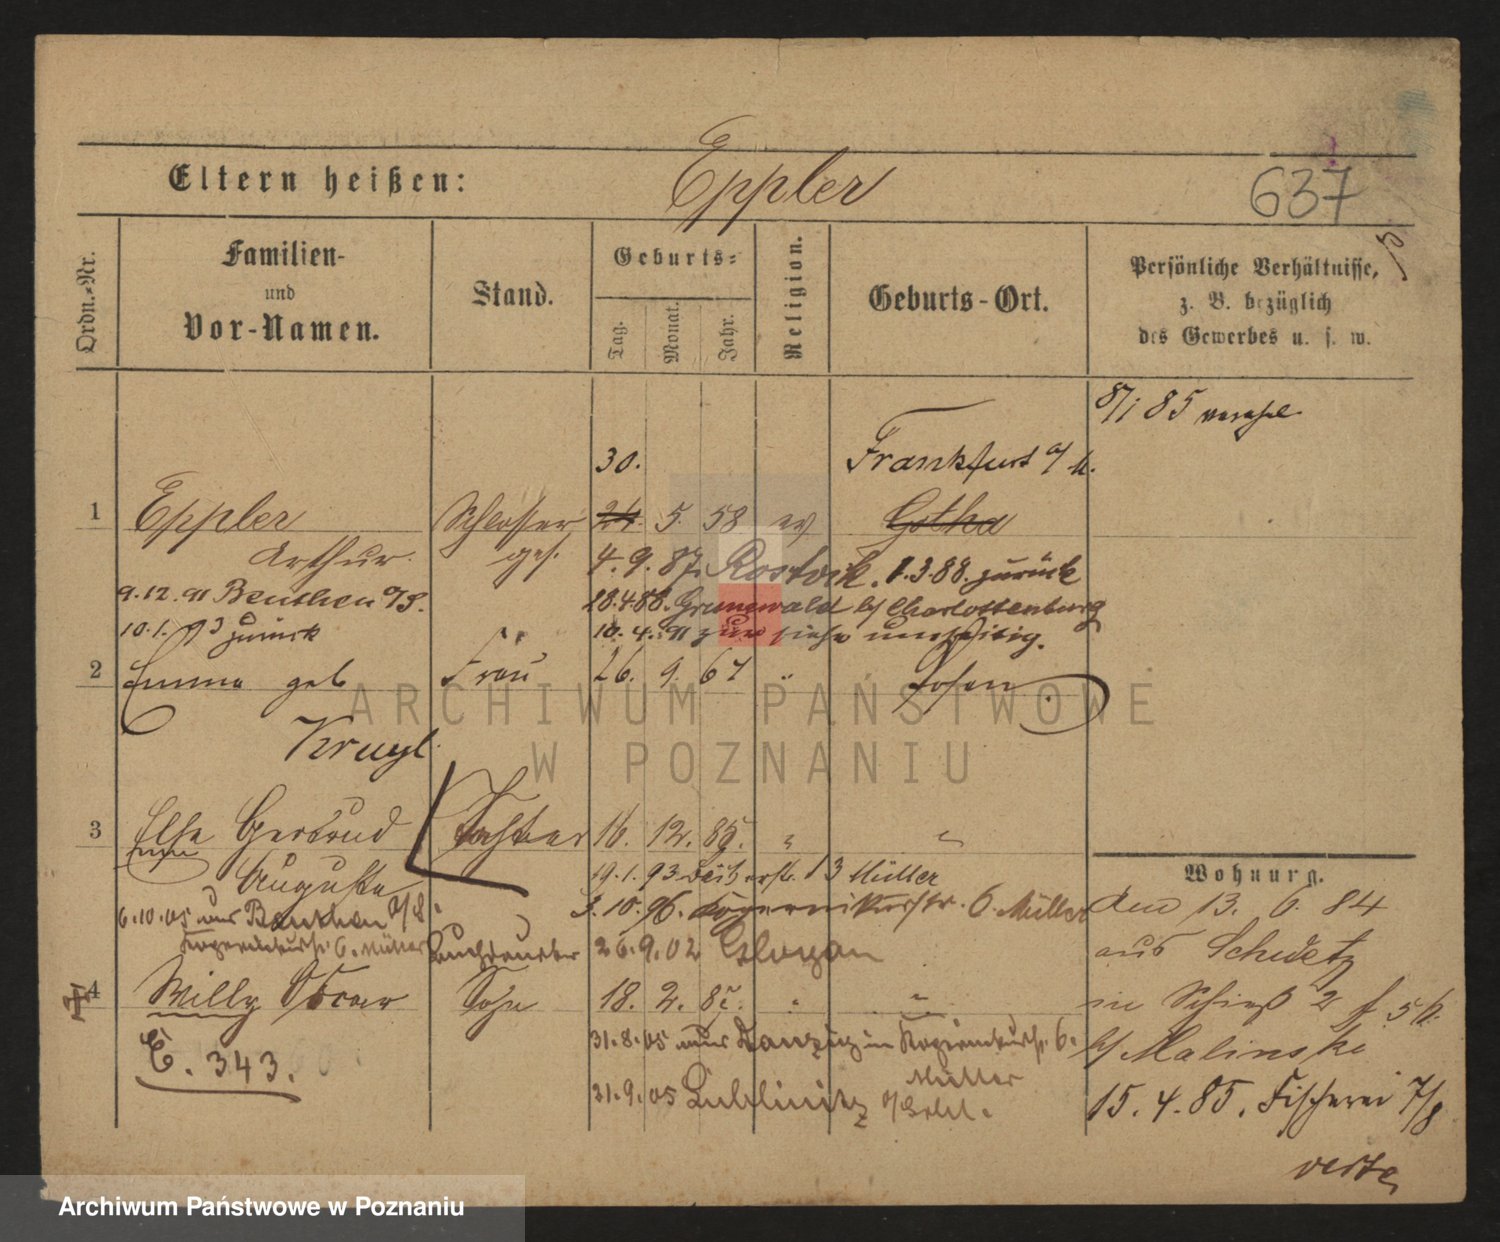 Eltern heißen: Eppler
637
Ordn.-Nr.
Familien-
und
Vor-Namen.
Stand.
Geburts-
Tag.
Monat.
Jahr.
Religion.
Geburts-Ort.
Persönliche Verhältnisse,
z. B. bezüglich
des Gewerbes u. s. w.
8/1 85
30. Frankfurt a/
1 Eppler Schlosser 24. 5. 58 ev Gotha
Arthur ges. 4. 9. 87. Rostock. 1.3.88. zurück
9.12.91 Beuthen O/S. 18.4.88. Grunewald b/ Charlottenburg
10.1.93 zurück 10. 4. 91 zur siehe umseitig.
2 Emma geb Frau 26. 9. 67 " Posen
Krugl
3 Else Gertrud Tochter 16. 12. 85. " "
Auguste 19.1.93 13 Müller
3.10.96. 6. Müller
6.10.05 aus Beuthen O/S.
6. Müller 26.9.02 Glogau
4 Willy Oscar Sohn 18. 2. " "
E. 343. 31.8.05 aus Danzig in 6.
Müller
21.9.05 Lublinitz
Wohnung.
den 13. 6. 84
aus Schwetz
in
b/ Malinski
15. 4. 85. Fischerei 7/8
verte
ARCHIWUM PAŃSTWOWE
W POZNANIU
Archiwum Państwowe w Poznaniu